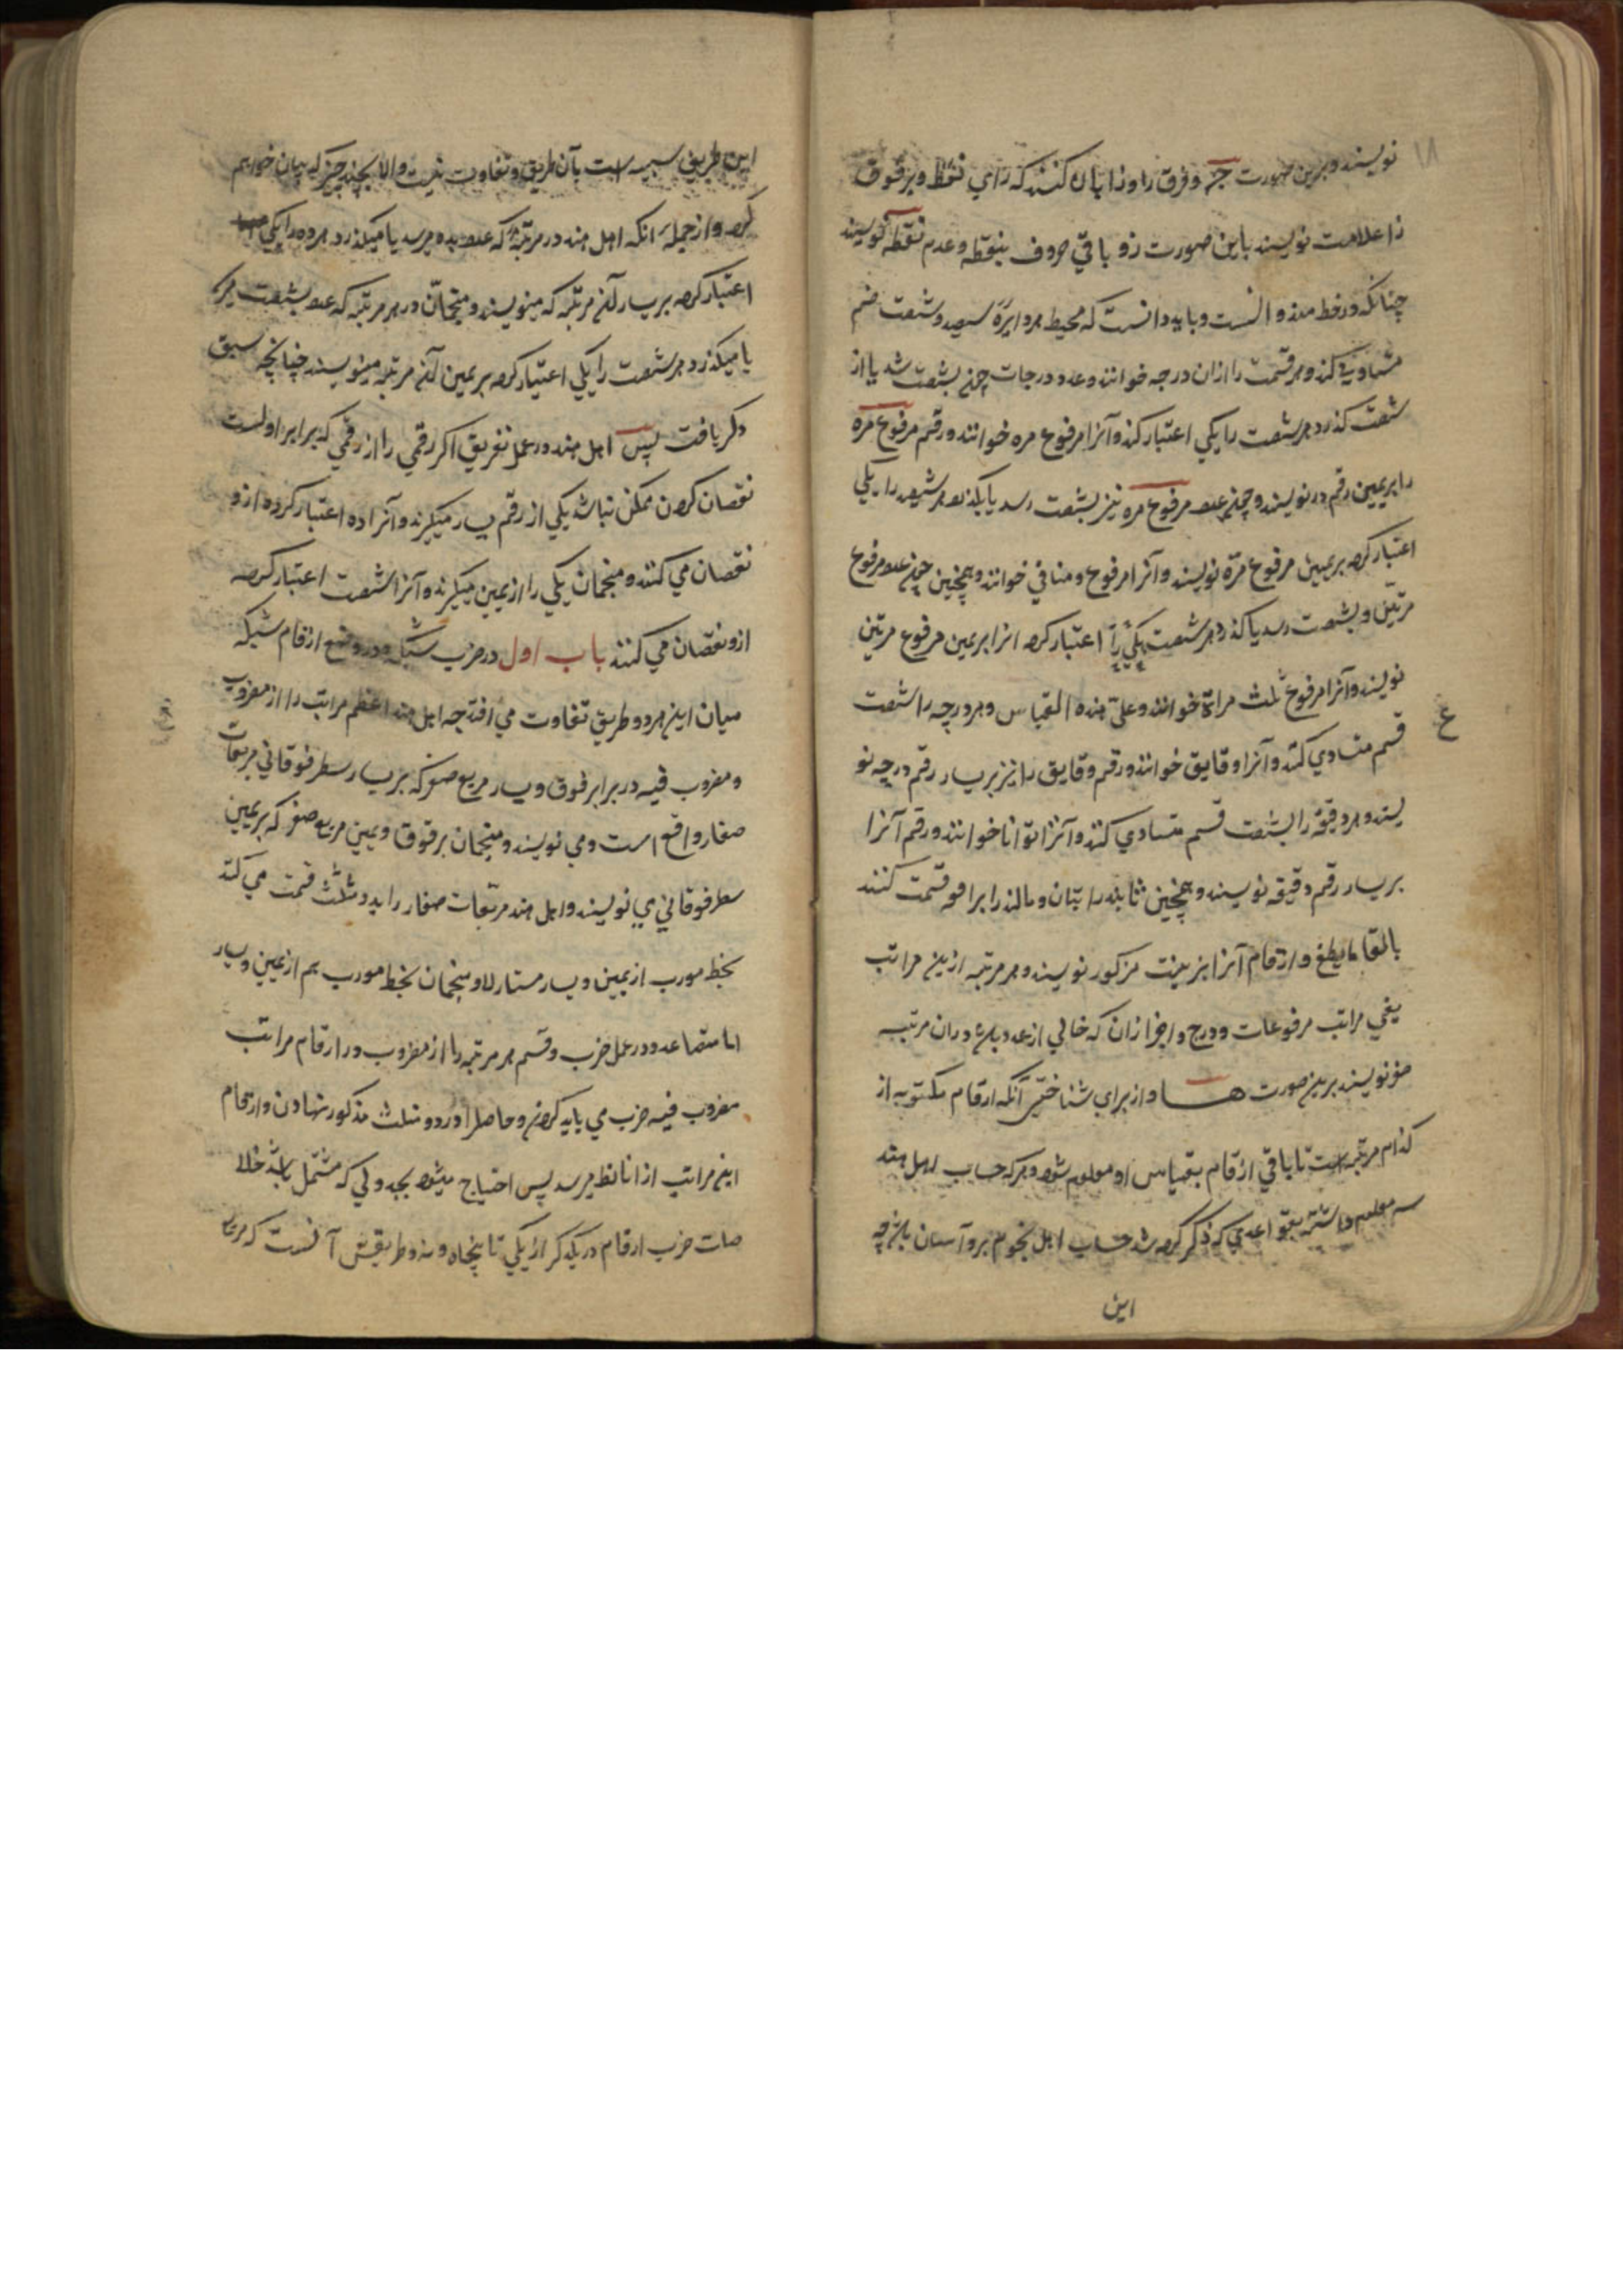 ۱۸
نویسند و برین صورت جـ و فرق را و زا بان کنند که زای نقط و بر فوق
زا علامت نویسند باین صورت ز و باقی حروف بنقطه و عدم نقطه نویسند
چنانکه در خط و باید دانست که محیط هر دایره سیصد و شصت قسم
متساویه کنند و هر قسمت را ازان درجه خوانند و عدد درجات چون بشصت رسد یا از
شصت کذرد هر شصت را یکی اعتبار کنند و آنرا مرفوع مره خوانند و رقم مرفوع مره
را بر یمین رقم درج نویسند و چون عدد مرفوع مره نیز بشصت رسد یا بکذرد هر شصت را یکی
اعتبار کرده بر یمین مرفوع مرة نویسند و آنرا مرفوع و مثانی خوانند و همچنین چون عدد مرفوع
مرتین و بشصت رسد یا کذرد هر شصت یکی را اعتبار کرده انرا بر یمین مرفوع مرتین
نویسند و آنرا مرفوع ثلث مراة خوانند و علی هذه القیاس و هر درجه را شصت
ع
قسم متساوی کنند و آنرا دقایق خوانند و رقم دقایق را نیز بر یسار رقم درجه نو
یسند و هر دقیقه را بشصت قسم متساوی کنند و آنرا ثوانا خوانند و رقم آنرا
بر یسار رقم دقیقه نویسند و همچنین قسمت کنند
بالغا ما یبلغ و ارقام آنرا بترتیب مزکور نویسند و هر مرتبه ازین مراتب
یعنی مراتب مرفوعات و درج و اجزا زان که خالی از عدد باشد دران مرتبه
صفر نویسند برین صورت هـا و از برای شناختن آنکه ارقام مکتوبه از
کدام مرتبه است تا باقی ارقام بقیاس او معلوم شود و هر که حساب اهل هند
معلوم داشته بقواعدی که ذکر کرده شد حساب اهل نجوم برو آسان باشد چه
این
این طریق شبیه است بآن طریق و تفاوت نیست والا بچند چیز که بیان خواهیم
کرد و از جمله آنکه اهل هند در مرتبۀ که عدد بده میرسد یا میکذرد هر ده را یکی
اعتبار کرده بر یسار آن مرتبه که مینویسند و منجمان در هر مرتبه که عدد بشصت میرسد
یا میکذرد هر شصت را یکی اعتبار کرده بر یمین آن مرتبه مینویسند چنانچه سبق
ذکر یافت پس اهل هند در عمل تفریق اکر رقمی را از رقمی که برابر اوست
نقصان کردن ممکن نباشد یکی از رقم یسار میکیرند و آنرا ده اعتبار کرده ازو
نقصان می کنند و منجمان یکی را از یمین میکیرند و آنرا شصت اعتبار کرده
ازو نقصان می کنند باب اول در ضرب شبکه و در وضع ارقام شبکه
میان این هر دو طریق تفاوت می افتد چه اهل هند اعظم مراتب را از مضروب
و مضروب فیه در برابر فوق و یسار مربع صغیر که بر یسار سطر فوقانی مربعات
صغار واقع است و می نویسند و منجمان بر فوق و یمین مربع صغیر که بر یمین
سطر فوقانی می نویسند و اهل هند مربعات صغار را بدو مثلث قسمت می کنند
بخط مورب از یمین و یسار و منجمان بخط مورب هم از یمین و یسار
اما متصاعد و در عمل ضرب و قسم هر مرتبه را از مضروب در ارقام مراتب
مضروب فیه ضرب می باید کردن و حاصل را در دو مثلث مذکور نهادن و ارقام
این مراتب پس احتیاج میشود بجدولی که مشتمل باشد
صلات ضرب ارقام در یکدیکر از یکی تا پنجاه و نه و طریقش آنست که